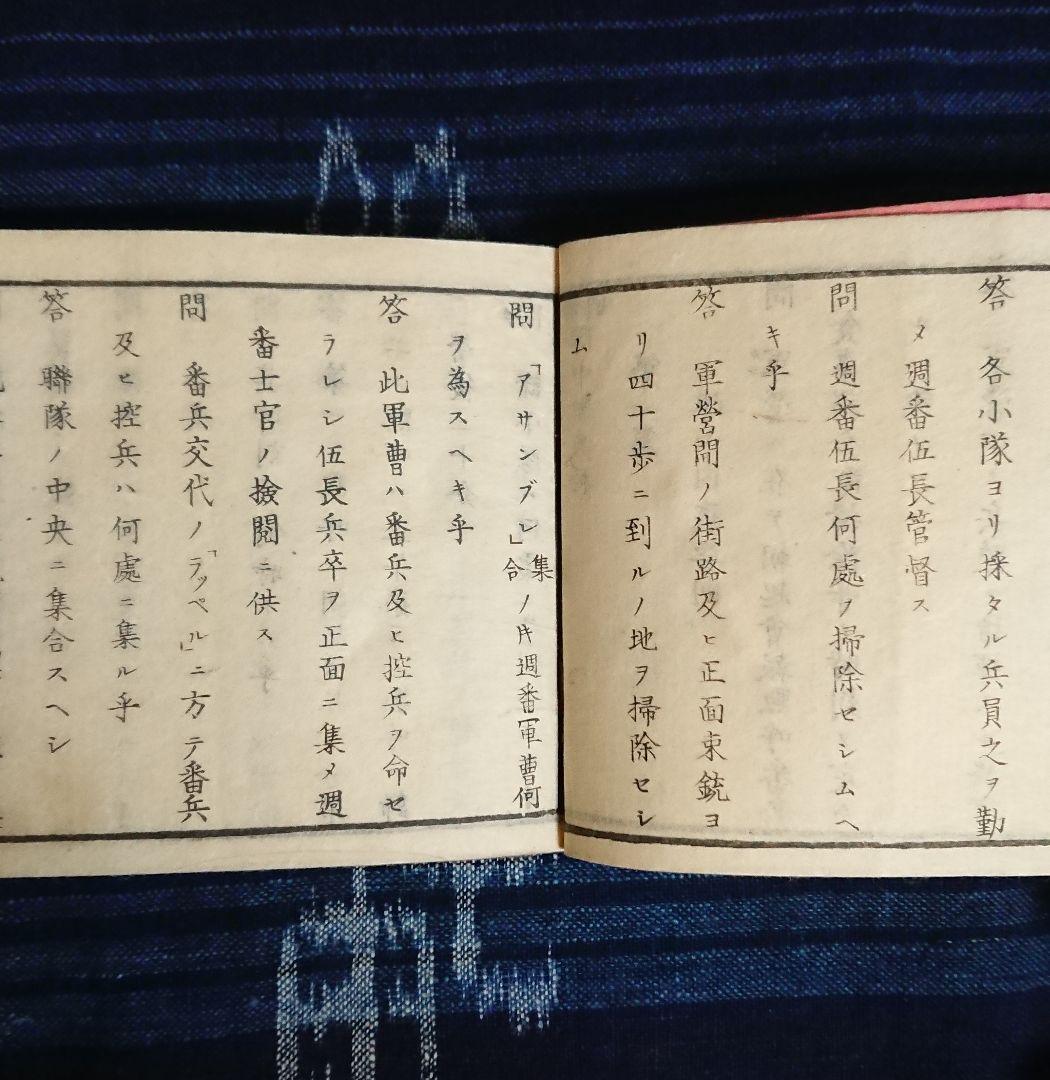 答 各小隊ヨリ採タル兵員之ヲ勤
メ週番伍長管督ス
問 週番伍長何處ヲ掃除セシムヘ
キ乎
答 軍營間ノ街路及ヒ正面束銃ヨ
リ四十歩ニ到ルノ地ヲ掃除セシ
ム
問 「アサンブレ」集合ノ𪜈週番軍曹何
ヲ為スヘキ乎
答 此軍曹ハ番兵及ヒ控兵ヲ命セ
ラレシ伍長兵卒ヲ正面ニ集メ週
番士官ノ撿閱ニ供ス
問 番兵交代ノ「ラッペル」ニ方テ番兵
及ヒ控兵ハ何處ニ集ル乎
答 聯隊ノ中央ニ集合スヘシ